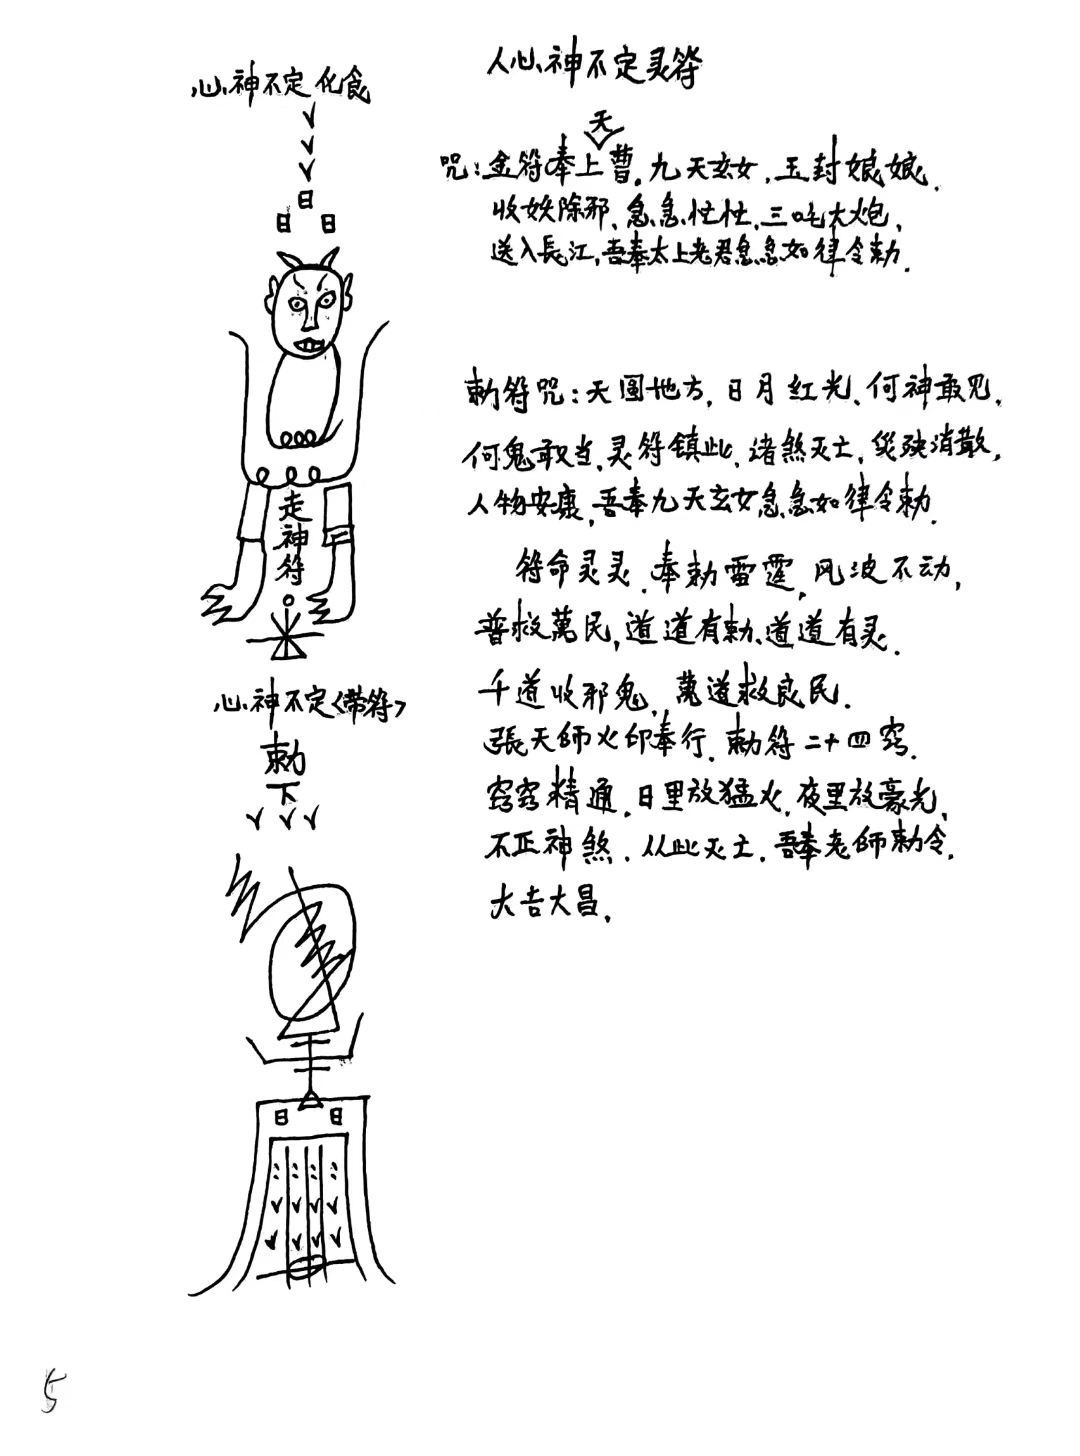 人心神不定灵符
心神不定化食
日
日 日
走神符
心神不定<带符>
勅
下
日 日
天
咒:金符奉上曹.九天玄女,玉封娘娘.
收妖除邪,急急忙忙,三吒大炮,
送入長江,吾奉太上老君急急如律令勅.
勅符咒:天圆地方,日月红光、何神敢见,
何鬼敢当,灵符镇此,诸煞灭亡,災殃消散,
人物安康,吾奉九天玄女急急如律令勅.
符命灵灵.奉勅雷霆,风波不动,
普救萬民,道道有勅、道道有灵.
千道收邪鬼,萬道救良民.
張天師火印奉行.勅符二十四窍.
窍窍精通.日里放猛火,夜里放豪光,
不正神煞.从此灭亡.吾奉老师勅令.
大吉大昌.
5